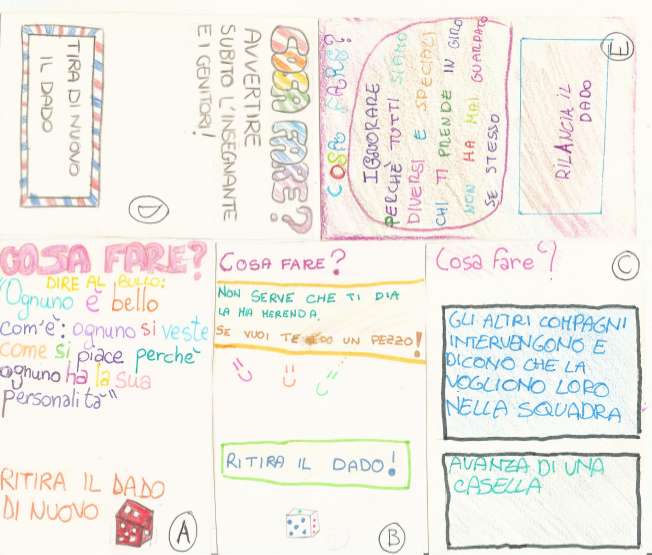 COSA FARE?
AVVERTIRE
SUBITO L'INSEGNANTE
E I GENITORI!
TIRA DI NUOVO
IL DADO
D
COSA FARE?
IGNORARE
PERCHÈ TUTTI SIAMO
DIVERSI E SPECIALI
CHI TI PRENDE IN GIRO
NON HA MAI GUARDATO
SE STESSO
RILANCIA IL
DADO
E
COSA FARE?
DIRE AL BULLO:
"Ognuno è bello
com'è: ognuno si veste
come si piace perchè
ognuno ha la sua
personalità"
RITIRA IL DADO
DI NUOVO
A
COSA FARE?
NON SERVE CHE TI DIA
LA MIA MERENDA.
SE VUOI TE DO UN PEZZO!
RITIRA IL DADO!
B
Cosa fare?
GLI ALTRI COMPAGNI
INTERVENGONO E
DICONO CHE LA
VOGLIONO LORO
NELLA SQUADRA
AVANZA DI UNA
CASELLA
C